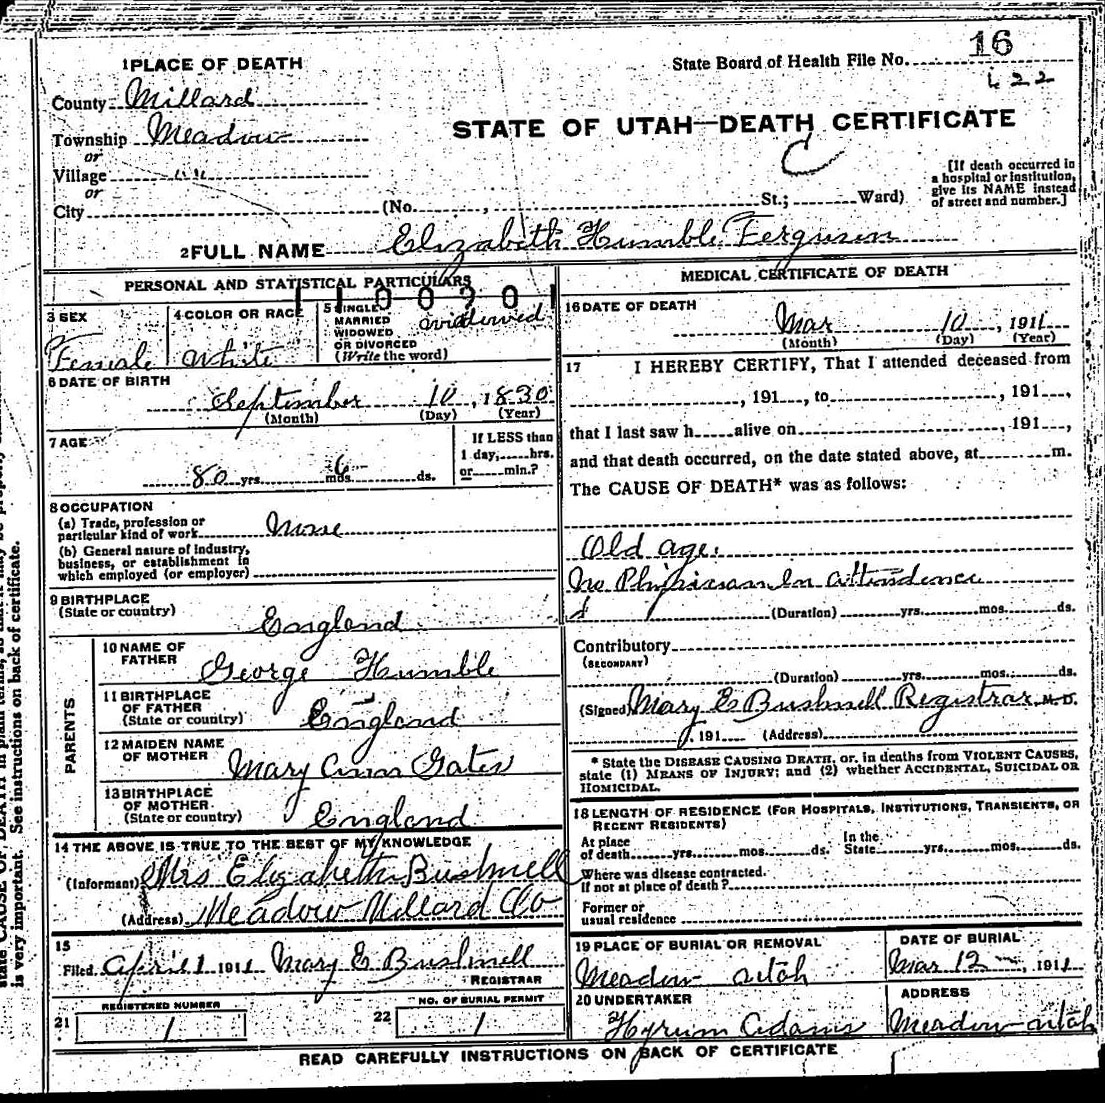 16
State Board of Health File No.
622
1 PLACE OF DEATH
County Millard
Township Meadow
or
Village " "
or
City
STATE OF UTAH—DEATH CERTIFICATE
C
[If death occurred in a hospital or institution, give its NAME instead of street and number.]
(No. , St.; Ward)
2 FULL NAME Elizabeth Humble Ferguson
PERSONAL AND STATISTICAL PARTICULARS
1100901
3 SEX
Female
4 COLOR OR RACE
White
5 SINGLE
MARRIED
WIDOWED
OR DIVORCED
(Write the word)
widowed
6 DATE OF BIRTH
September 10, 1830
(Month) (Day) (Year)
7 AGE
80 yrs. 6 mos. ds.
If LESS than
1 day, hrs.
or min.?
8 OCCUPATION
(a) Trade, profession or
particular kind of work None
(b) General nature of industry,
business, or establishment in
which employed (or employer)
9 BIRTHPLACE
(State or country)
England
PARENTS
10 NAME OF
FATHER
George Humble
11 BIRTHPLACE
OF FATHER
(State or country)
England
12 MAIDEN NAME
OF MOTHER
Mary Ann Gates
13 BIRTHPLACE
OF MOTHER
(State or country)
England
14 THE ABOVE IS TRUE TO THE BEST OF MY KNOWLEDGE
(Informant) Mrs Elizabeth Bushnell
(Address) Meadow Millard Co
15
Filed April 1 1911 Mary E Bushnell
REGISTRAR
REGISTERED NUMBER
21 1
NO. OF BURIAL PERMIT
22 1
MEDICAL CERTIFICATE OF DEATH
16 DATE OF DEATH
Mar 10, 1911
(Month) (Day) (Year)
17 I HEREBY CERTIFY, That I attended deceased from
, 191 , to , 191 ,
that I last saw h alive on , 191 ,
and that death occurred, on the date stated above, at m.
The CAUSE OF DEATH* was as follows:
Old age.
No Physician In attendence
(Duration) yrs. mos. ds.
Contributory
(SECONDARY)
(Duration) yrs. mos. ds.
(Signed) Mary E Bushnell Registrar M.D.
, 191 (Address)
* State the DISEASE CAUSING DEATH, or, in deaths from VIOLENT CAUSES,
state (1) MEANS OF INJURY; and (2) whether ACCIDENTAL, SUICIDAL OR
HOMICIDAL.
18 LENGTH OF RESIDENCE (FOR HOSPITALS, INSTITUTIONS, TRANSIENTS, OR
RECENT RESIDENTS)
At place
of death yrs. mos. ds.
In the
State yrs. mos. ds.
Where was disease contracted.
If not at place of death?
Former or
usual residence
19 PLACE OF BURIAL OR REMOVAL
Meadow Utah
DATE OF BURIAL
Mar 12, 1911
20 UNDERTAKER
Hyrum Adams
ADDRESS
Meadow Utah
READ CAREFULLY INSTRUCTIONS ON BACK OF CERTIFICATE
is very important. See instructions on back of certificate.